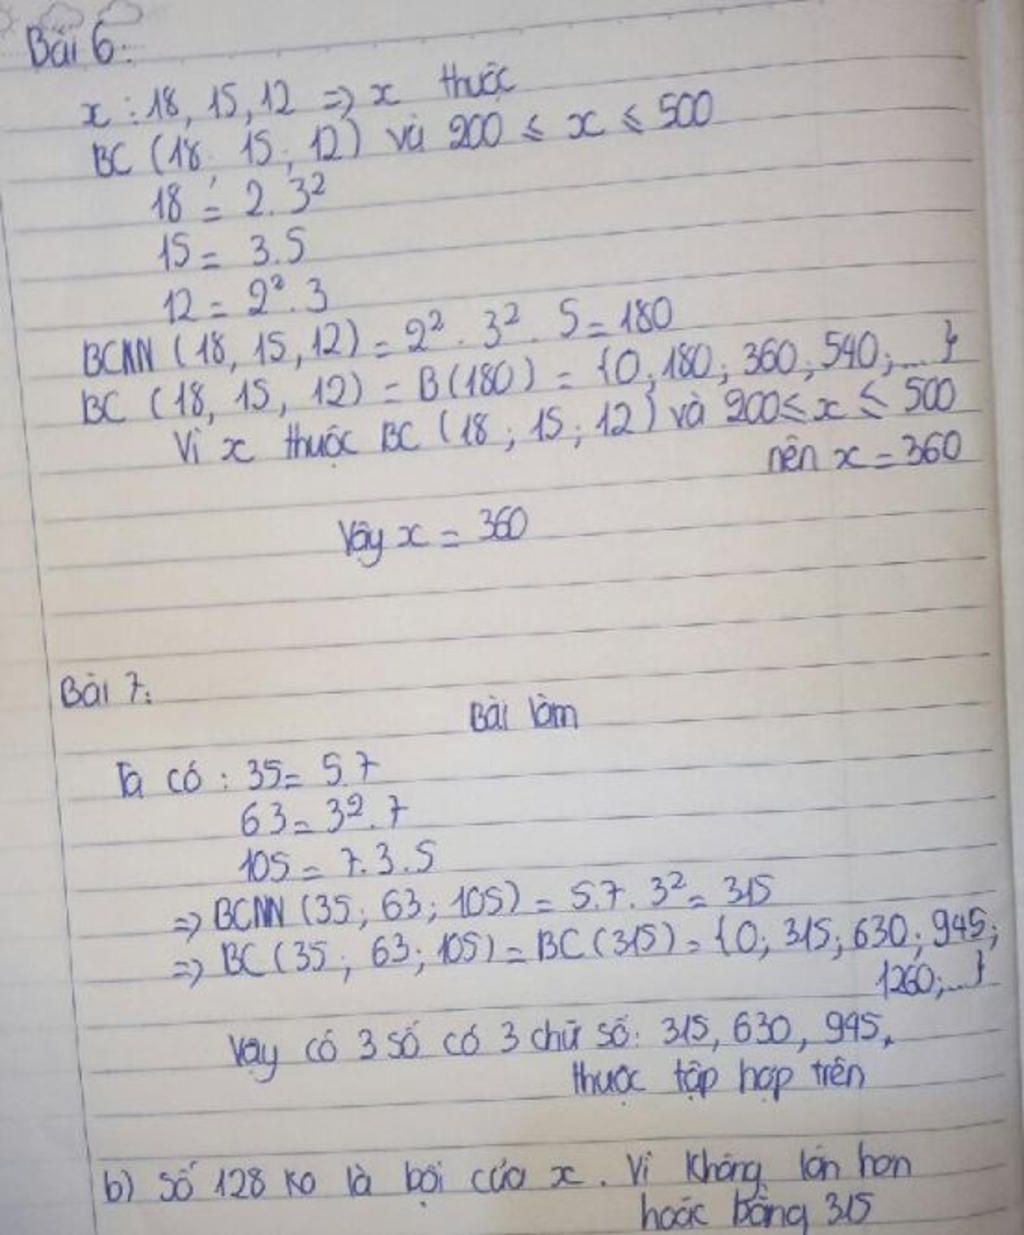 Bài 6:
x : 18, 15, 12 => x thuộc
BC (18, 15, 12) và 200 ≤ x ≤ 500
18 = 2.3²
15 = 3.5
12 = 2².3
BCNN (18, 15, 12) = 2². 3². 5 = 180
BC (18, 15, 12) = B(180) = {0; 180; 360; 540; ...}
Vì x thuộc BC (18; 15; 12) và 200 ≤ x ≤ 500
nên x = 360
Vậy x = 360
Bài 7:
Bài làm
Ta có : 35 = 5.7
63 = 3².7
105 = 7.3.5
=> BCNN (35; 63; 105) = 5.7.3² = 315
=> BC (35; 63; 105) = BC (315) = {0; 315; 630; 945;
1260;...}
Vậy có 3 số có 3 chữ số: 315, 630, 945,
thuộc tập hợp trên
b) số 128 ko là bội của x. Vì không lớn hơn
hoặc bằng 315